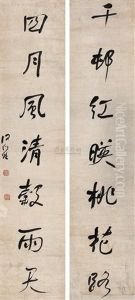 千邨紅暎桃花路
四月風清穀雨天